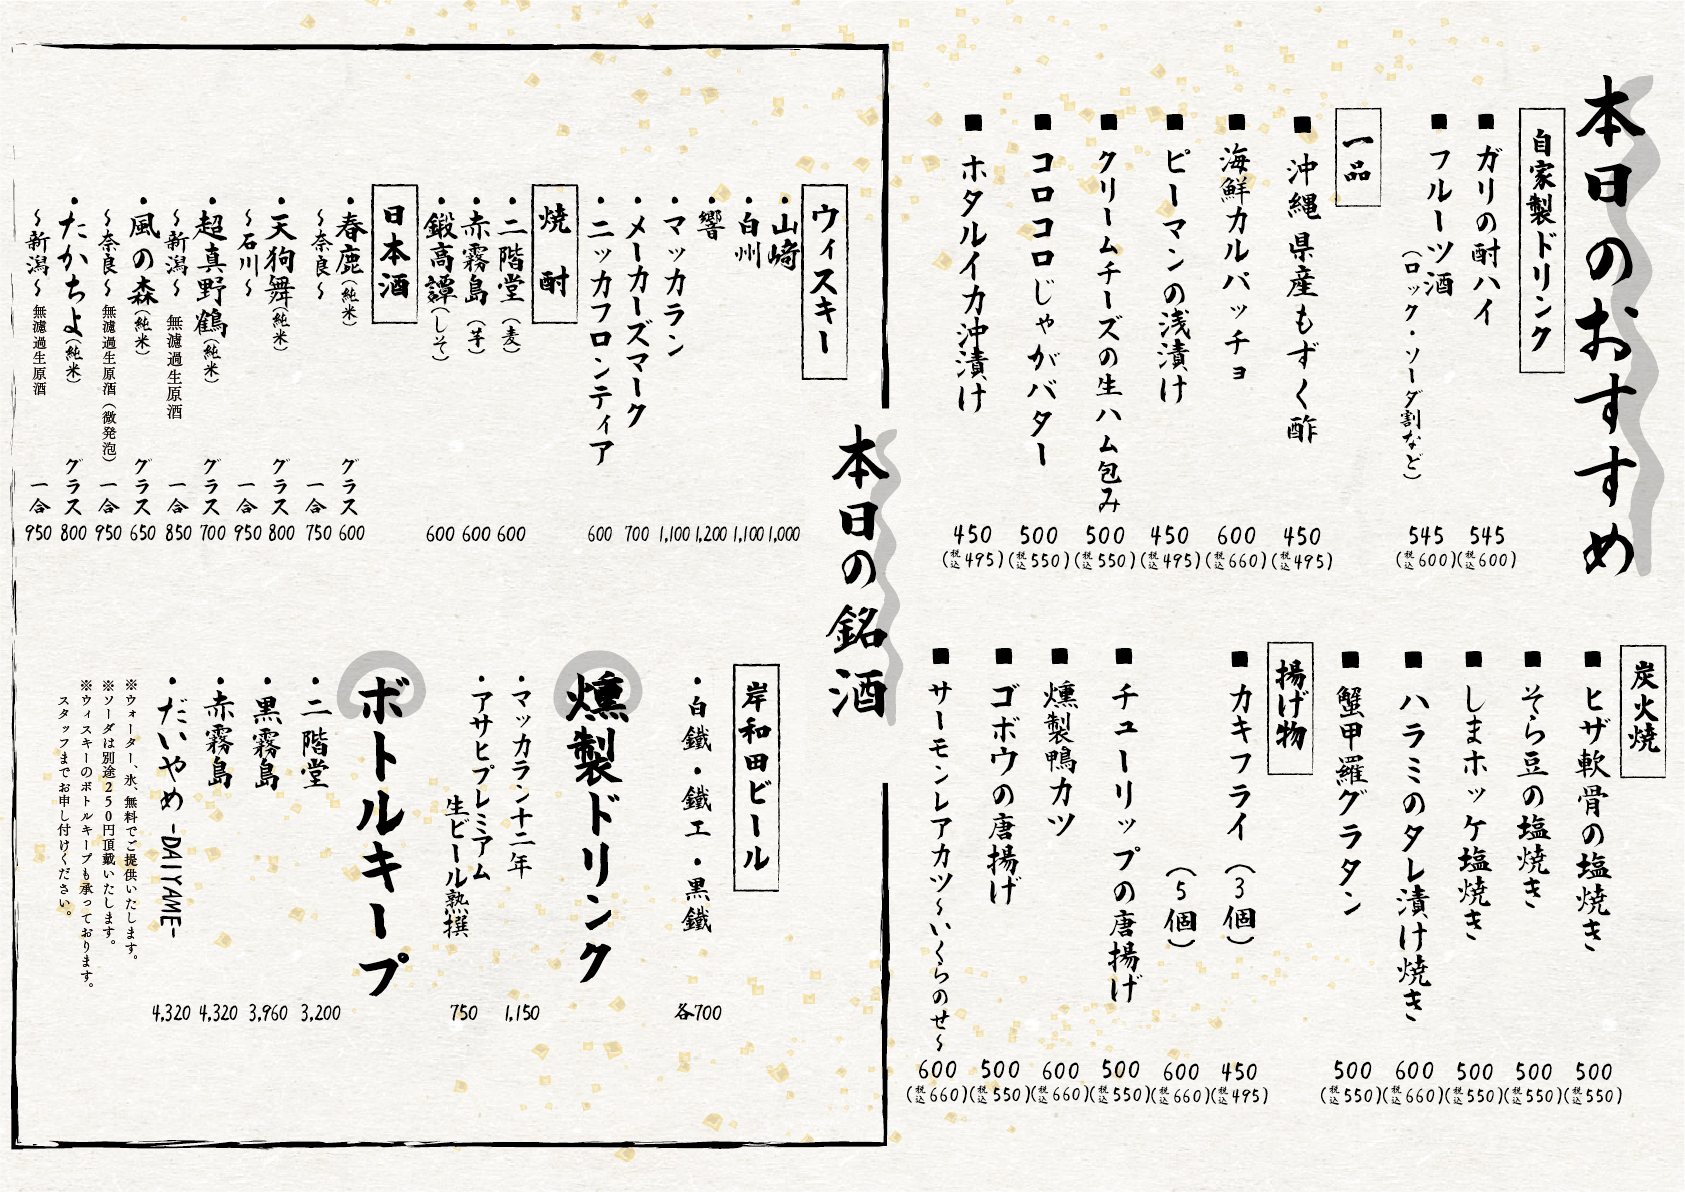 本日のおすすめ
自家製ドリンク
■ ガリの酎ハイ 545 (税込600)
■ フルーツ酒 545 (税込600)
(ロック・ソーダ割など)
一品
■ 沖縄県産もずく酢 450 (税込495)
■ 海鮮カルパッチョ 600 (税込660)
■ ピーマンの浅漬け 450 (税込495)
■ クリームチーズの生ハム包み 500 (税込550)
■ コロコロじゃがバター 500 (税込550)
■ ホタルイカ沖漬け 450 (税込495)
炭火焼
■ ヒザ軟骨の塩焼き 500 (税込550)
■ そら豆の塩焼き 500 (税込550)
■ しまホッケ塩焼き 500 (税込550)
■ ハラミのタレ漬け焼き 600 (税込660)
■ 蟹甲羅グラタン 500 (税込550)
揚げ物
■ カキフライ (3個) 450 (税込495)
(5個) 600 (税込660)
■ チューリップの唐揚げ 500 (税込550)
■ 燻製鴨カツ 600 (税込660)
■ ゴボウの唐揚げ 500 (税込550)
■ サーモンレアカツ〜いくらのせ〜 600 (税込660)
本日の銘酒
ウィスキー
・山崎 1,000
・白州 1,100
・響 1,200
・マッカラン 1,100
・メーカーズマーク 700
・ニッカフロンティア 600
焼酎
・二階堂(麦) 600
・赤霧島(芋) 600
・鍛高譚(しそ) 600
日本酒
・春鹿(純米) グラス 600
〜奈良〜 一合 750
・天狗舞(純米) グラス 800
〜石川〜 一合 950
・超真野鶴(純米) グラス 700
〜新潟〜 無濾過生原酒 一合 850
・風の森(純米) グラス 650
〜奈良〜 無濾過生原酒(微発泡) 一合 950
・たかちよ(純米) グラス 800
〜新潟〜 無濾過生原酒 一合 950
岸和田ビール
・白鐵・鐵工・黒鐵 各700
燻製ドリンク
・マッカラン十二年 1,150
・アサヒプレミアム
生ビール熟撰 750
ボトルキープ
・二階堂 3,200
・黒霧島 3,960
・赤霧島 4,320
・だいやめ -DAIYAME- 4,320
※ウォーター、氷、無料でご提供いたします。
※ソーダは別途250円頂戴いたします。
※ウィスキーのボトルキープも承っております。
スタッフまでお申し付けください。